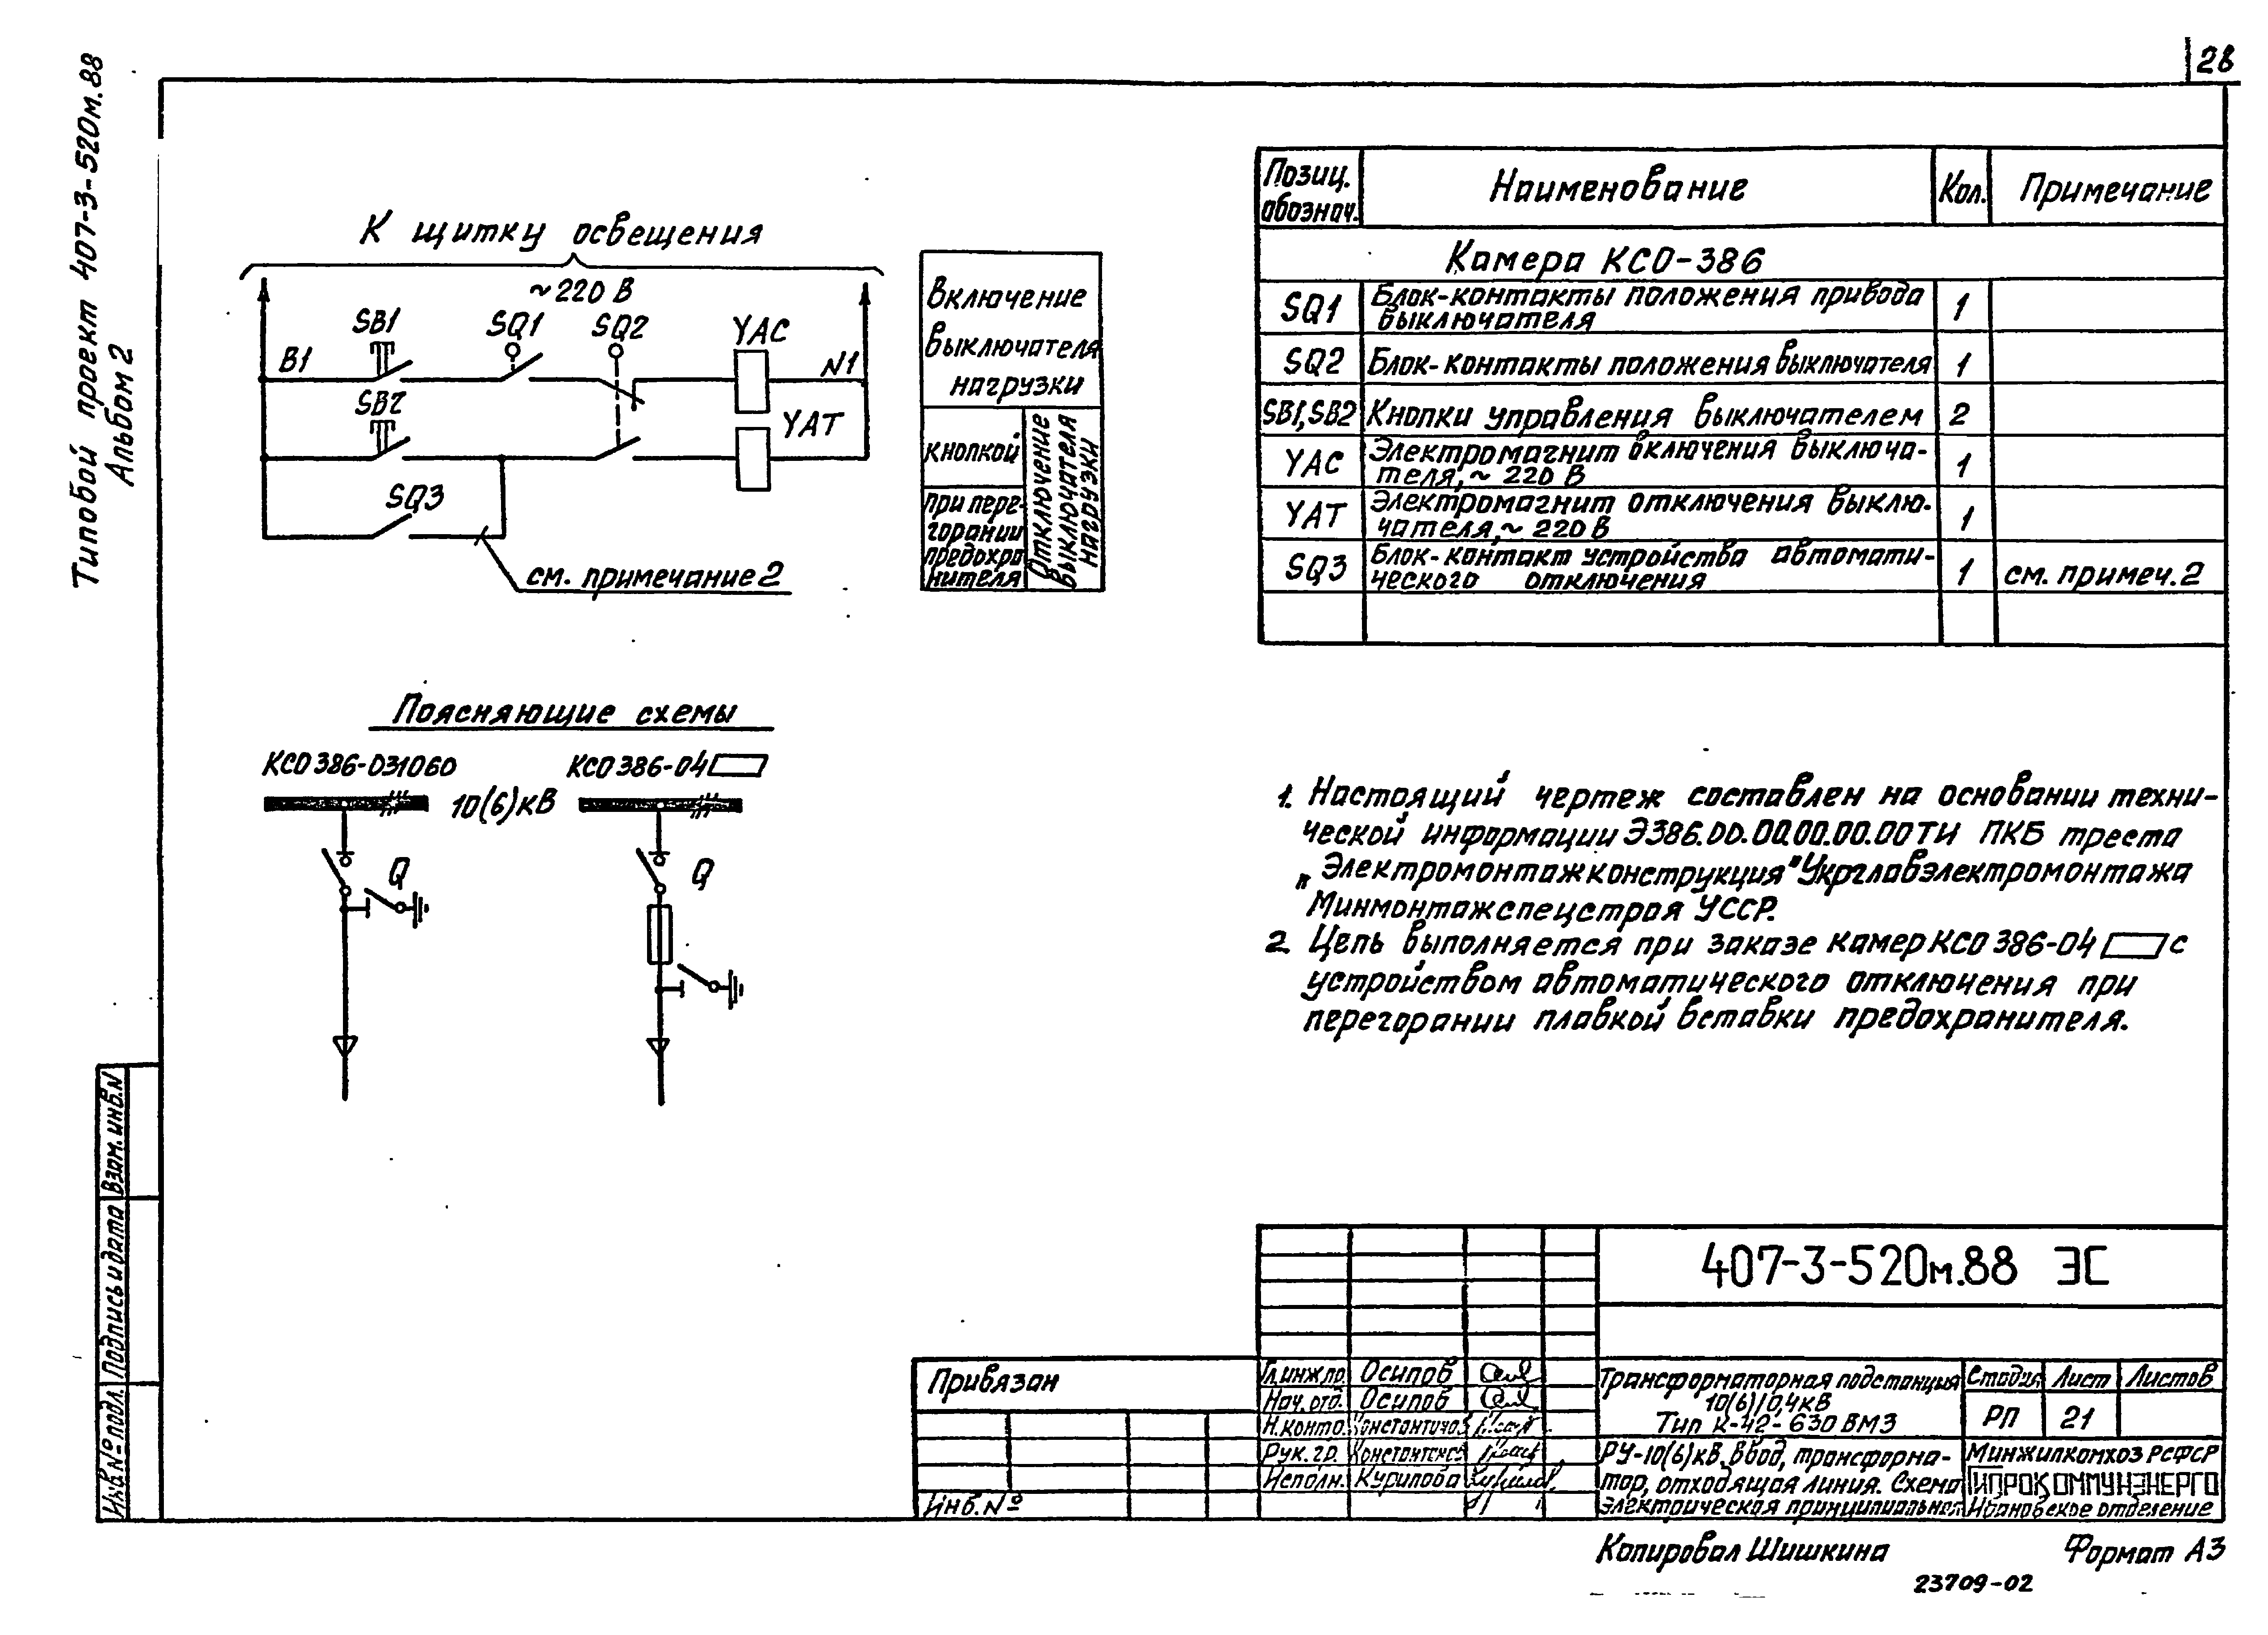 28
Типовой проект 407-3-520м.88
Альбом 2
К щитку освещения
~220 В
SB1
SQ1
SQ2
YAC
В1
N1
SB2
YAT
SQ3
см. примечание 2
Включение
выключателя
нагрузки
кнопкой
При пере-
горании
предохра
нителя
Отключение
выключателя
нагрузки
Позиц. обознач.
Наименование
Кол.
Примечание
Камера КСО-386
SQ1 Блок-контакты положения привода 1
выключателя
SQ2 Блок-контакты положения выключателя 1
SB1,SB2 Кнопки управления выключателем 2
YAC Электромагнит включения выключа- 1
теля,~ 220 В
YAT Электромагнит отключения выклю- 1
чателя,~ 220 В
SQ3 Блок-контакт устройства автомати- 1 см. примеч.2
ческого отключения
Поясняющие схемы
КСО 386-031060
КСО 386-04
10(6)кВ
Q
Q
1. Настоящий чертеж составлен на основании техни-
ческой информации Э386.00.00.00.00.00ТИ ПКБ треста
„Электромонтажконструкция" Укрглавэлектромонтажа
Минмонтажспецстроя УССР.
2 Цепь выполняется при заказе камер КСО 386-04 с
устройством автоматического отключения при
перегорании плавкой вставки предохранителя.
Взам. инв.N
Подпись и дата
Инв.№ подл.
407-3-520м.88 ЭС
Привязан
Инб.№
Гл.инж.пр. Осипов
Нач.отд. Осипов
Н.контр.
Рук. гр.
Исполн. Курилова
Трансформаторная подстанция
10(6)/0,4кВ
Тип К-42-630 ВМЗ
Стадия Лист Листов
РП 21
РУ-10(6)кВ. Ввод, трансформа-
тор, отходящая линия. Схема
электрическая принципиальная
Минжилкомхоз РСФСР
ГИПРОКОММУНЭНЕРГО
Ивановское отделение
Копировал Шишкина
Формат А3
23709-02